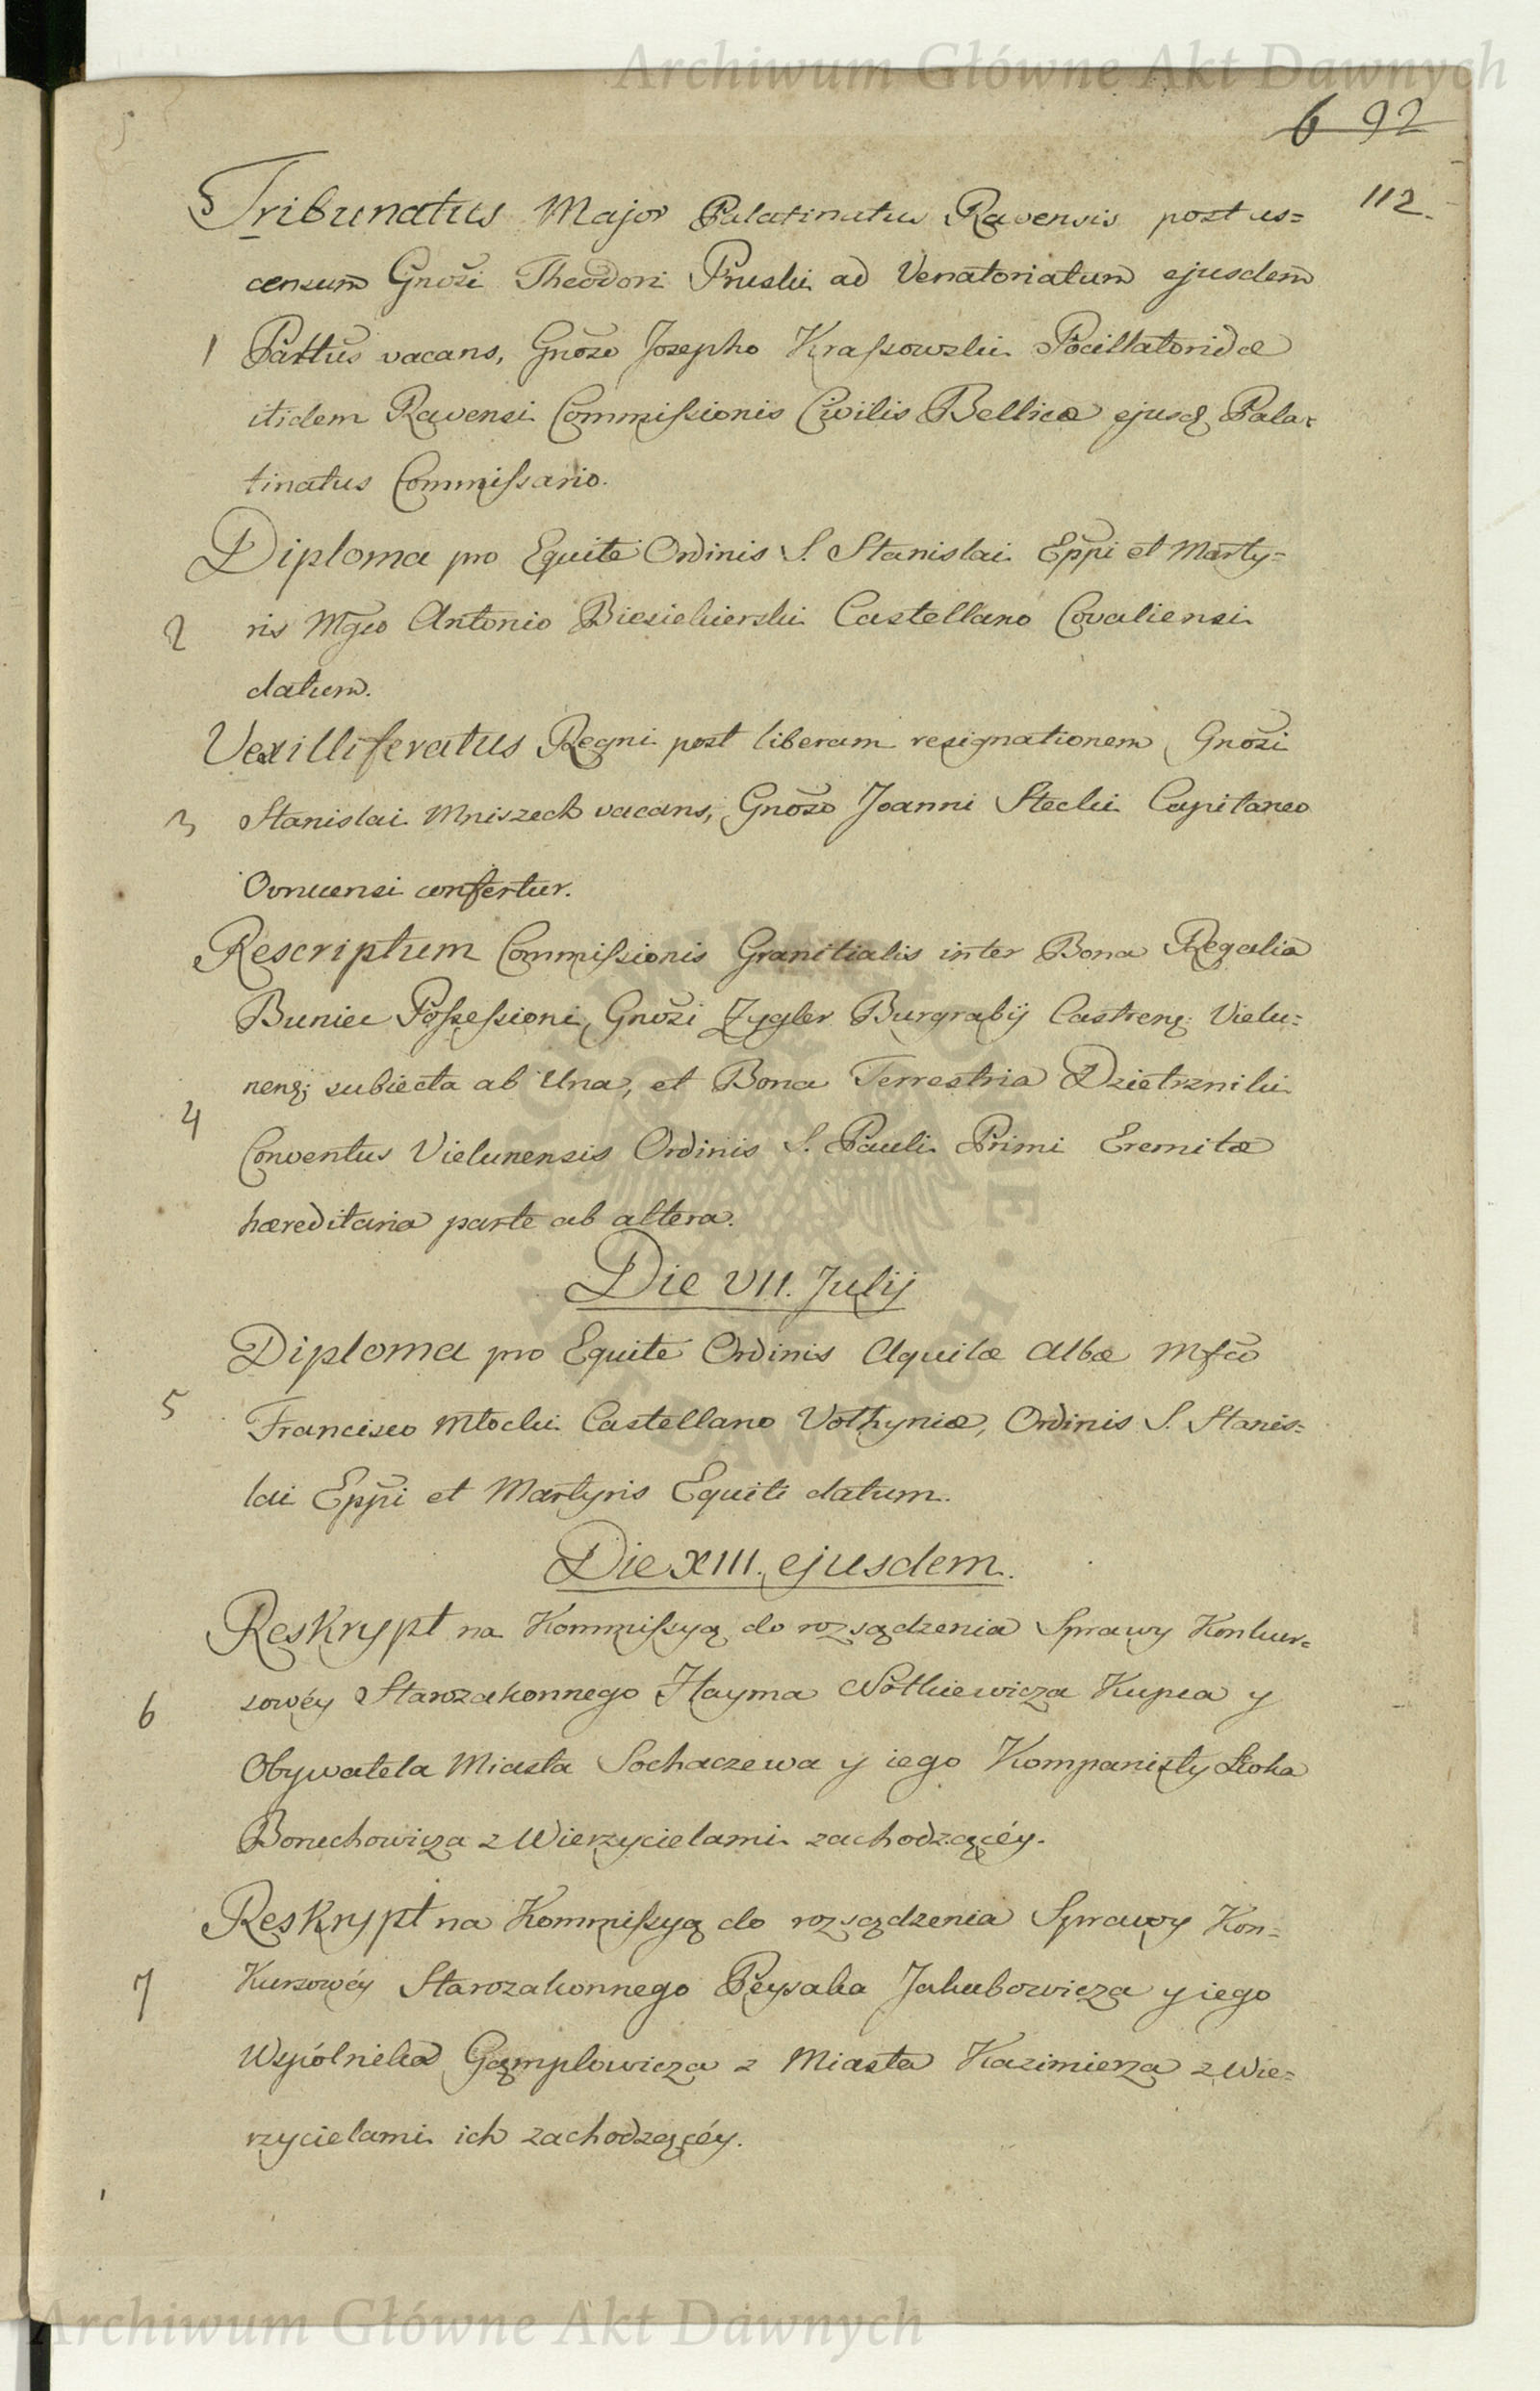 Archiwum Główne Akt Dawnych
6 92
112.
Tribunatus Major Palatinatus Ravensis post as=
censum Gnosi Theodori Pruski ad Venatoriatum ejusdem
1 Pattus vacans, Gnoso Josepho Kraſsowski Pocillatoridæ
itidem Ravensi Commiſsionis Civilis Bellicæ ejusq Pala=
tinatus Commiſsario.
Diploma pro Equite Ordinis S. Stanislai Eppi et Marty=
2 ris Mgco Antonio Biesiekierski Castellano Covaliensi
datum.
Vexilliferatus Regni post liberam resignationem Gnosi
3 Stanislai Mniszech vacans, Gnoso Joanni Stecki Capitaneo
Ovrucensi confertur.
Rescriptum Commiſsionis Granitialis inter Bona Regalia
Buniec Poſseſsioni Gnosi Zygler Burgrabij Castrenꝫ Vielu=
nenꝫ subiecta ab una, et Bona Terrestria Dzietrzniki
4 Conventus Vielunensis Ordinis S. Pauli Primi Eremitæ
hæreditaria parte ab altera.
Die VII. Julij
Diploma pro Equite Ordinis Aquilæ Albæ Mfco
5 Francisco Młocki Castellano Volhyniæ, Ordinis S. Stanis=
lai Eppi et Martyris Equiti datum.
Die XIII. ejusdem.
Reskrypt na Kommiſsyą do rozsądzenia Sprawy Konkur=
6 sowéy Starozakonnego Hayma Wolkiewicza Kupca y
Obywatela Miasta Sochaczewa y iego Kompanisty
Boruchowicza z Wierzycielami zachodzącéy.
Reskrypt na Kommiſsyą do rozsądzenia Sprawy Kon=
7 Kursowéy Starozakonnego Peysaka Jakubowicza y iego
Wspólnika Gąmplowicza z Miasta Kazimierza z Wie=
rzycielami ich zachodzącéy.
Archiwum Główne Akt Dawnych